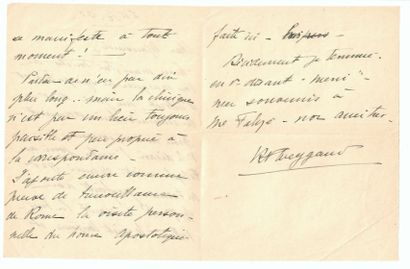 se manifeste à tout
moment !
pas dix
plus long – mais la clinique
n'est pas un lieu toujours
paisible et peu propice à
la correspondance.
J'ajoute encore comme
preuve de
de Rome la visite person-
nelle du nonce apostolique
faite ici –
Bravement je termine
en vs disant "merci" –
mes souvenirs à
Me – mon amitié.
Weygand